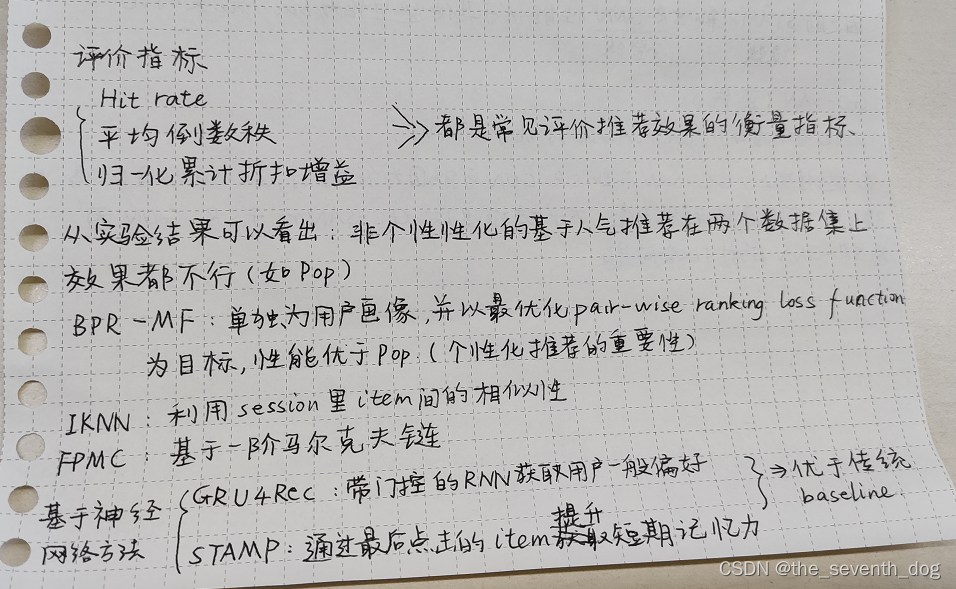 评价指标
Hit rate
平均倒数秩
归一化累计折扣增益
都是常见评价推荐效果的衡量指标、
从实验结果可以看出：非个性性化的基于人气推荐在两个数据集上
效果都不行（如Pop）
BPR-MF：单独为用户画像，并以最优化pair-wise ranking loss function
为目标，性能优于Pop（个性化推荐的重要性）
IKNN：利用session里item间的相似性
FPMC：基于一阶马尔克夫链
基于神经
网络方法
GRU4Rec：带门控的RNN获取用户一般偏好
提升
STAMP：通过最后点击的item获取短期记忆力
⇒优于传统
baseline.
CSDN @the_seventh_dog